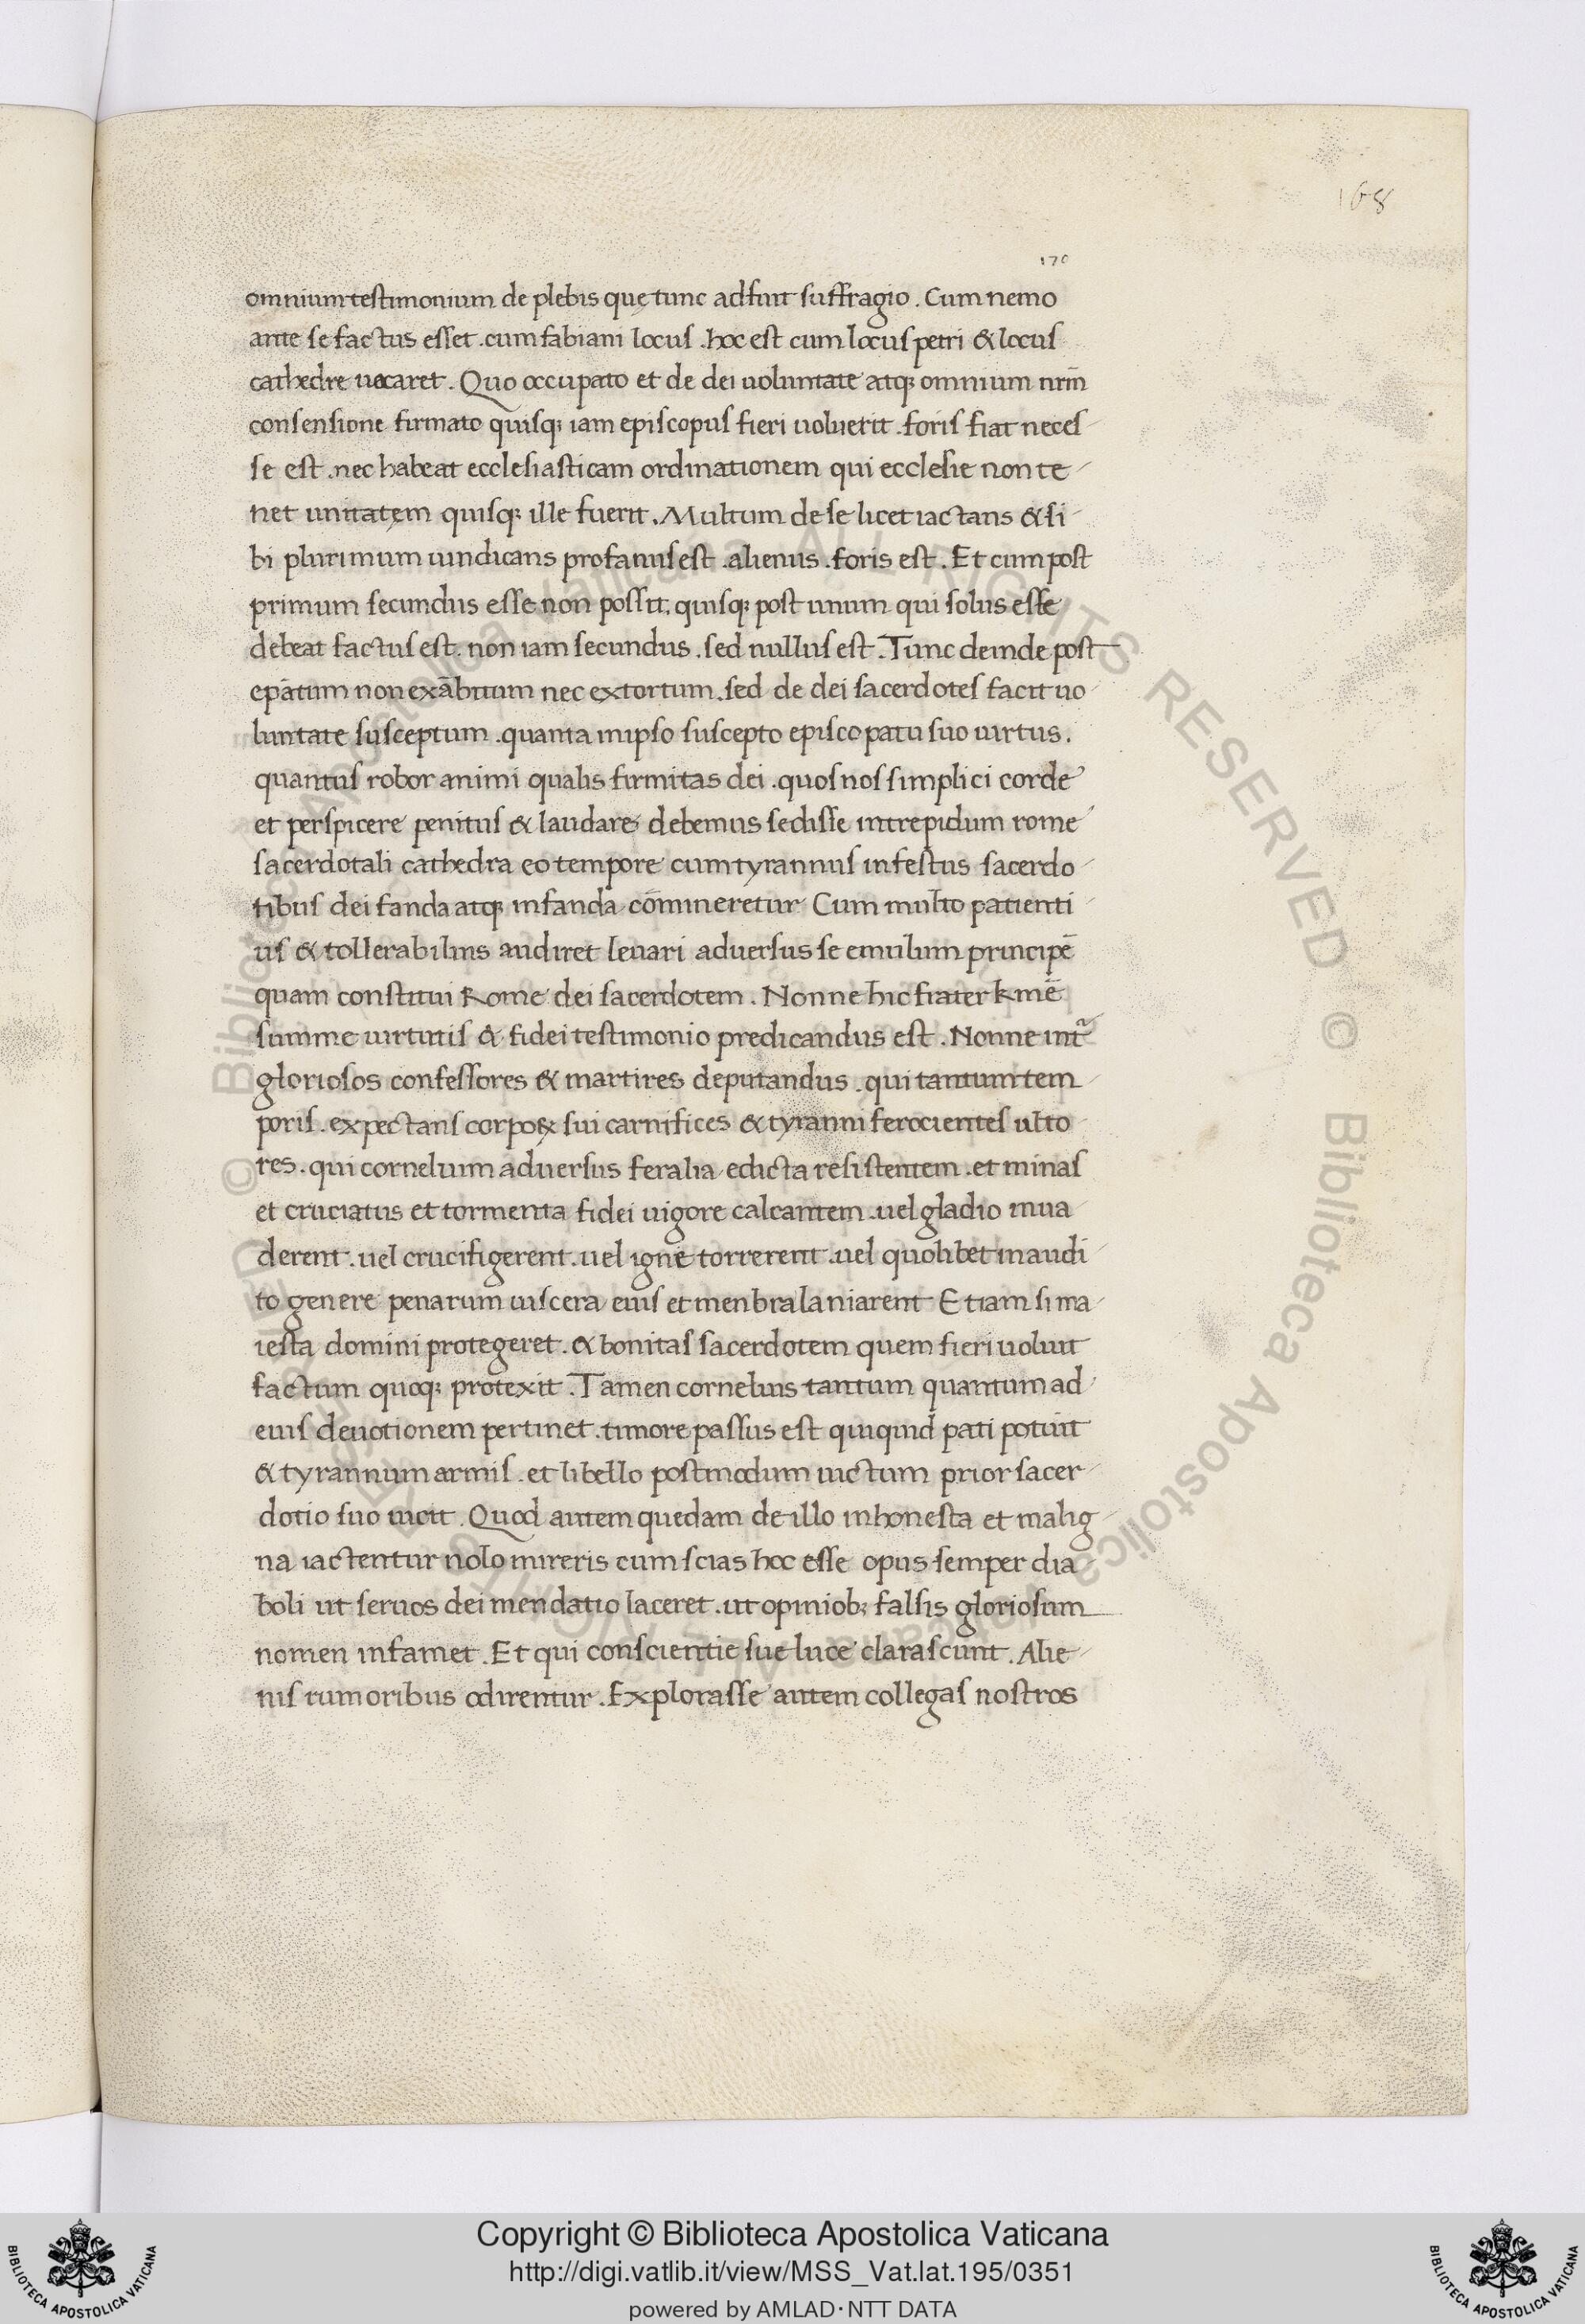 168
170
omnium testimonium de plebis quę tunc adfuit suffragio . Cum nemo
ante se factus esset . cum fabiani locus . hoc est cum locus petri & locus
cathedre uacaret . Quo occupato et de dei uoluntate atq; omnium nr̄m
consensione firmato quisq; iam episcopus fieri uoluerit . foris fiat neces
se est . nec habeat ecclesiasticam ordinationem qui ecclesie non te
net unitatem quisq; ille fuerit . Multum de se licet iactans & si
bi plurimum uindicans profanus est . alienus . foris est . Et cum post
primum secundus esse non possit; quisq; post unum qui solus esse
debeat factus est . non iam secundus . sed nullus est . Tunc deinde post
ep̄atum non exābitum nec extortum . sed de dei sacerdotes facit uo
luntate susceptum . quanta in ipso suscepto episcopatu suo uirtus .
quantus robor animi qualis firmitas dei . quos nos simplici corde
et perspicere penitus & laudare debemus sedisse intrepidum rome
sacerdotali cathedra eo tempore cum tyrannus infestus sacerdo
tibus dei fanda atq; infanda cōmineretur Cum multo patienti
us & tollerabilius audiret leuari aduersus se emulum principē
quam constitui Rome dei sacerdotem . Nonne hic frater kmē
summe uirtutis & fidei testimonio predicandus est . Nonne int̃
gloriosos confessores & martires deputandus . qui tantum tem
poris . expectans corpoꝝ sui carnifices & tyranni ferocientes ulto
res . qui cornelium aduersus feralia edicta resistentem . et minas
et cruciatus et tormenta fidei uigore calcantem . uel gladio inua
derent . uel crucifigerent . uel igne torrerent . uel quolibet inaudi
to genere penarum uiscera eius et menbra laniarent Etiam si ma
iesta domini protegeret . & bonitas sacerdotem quem fieri uoluit
factum quoq; protexit . Tamen cornelius tantum quantum ad
eius deuotionem pertinet . timore passus est quiquid pati potuit
& tyrannum armis . et libello postmodum uictum prior sacer
dotio suo uicit . Quod autem quedam de illo inhonesta et malig
na iactentur nolo mireris cum scias hoc esse opus semper dia
boli ut seruos dei mendatio laceret . ut opiniob; falsis gloriosum
nomen infamet . Et qui conscientie sue luce clarascunt . Alie
nis rumoribus odirentur . Explorasse autem collegas nostros
© Biblioteca Apostolica Vaticana ALL RIGHTS RESERVED © Biblioteca Apostolica Vaticana ALL RIGHTS RESERVED
Copyright © Biblioteca Apostolica Vaticana
http://digi.vatlib.it/view/MSS_Vat.lat.195/0351
powered by AMLAD·NTT DATA
BIBLIOTECA APOSTOLICA VATICANA
BIBLIOTECA APOSTOLICA VATICANA